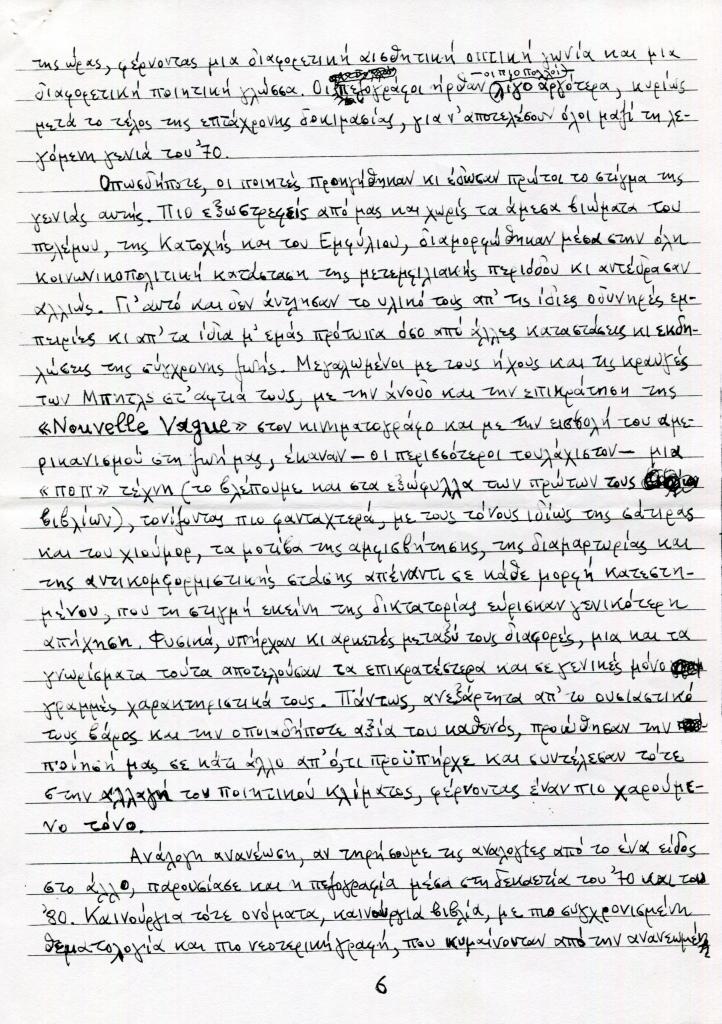 της ώρας, φέρνοντας μια διαφορετική αισθητική οπτική γωνία και μια
—οι πιο πολλοί—
διαφορετική ποιητική γλώσσα. Οι πεζογράφοι ήρθαν λίγο αργότερα, κυρίως
μετά το τέλος της επτάχρονης δοκιμασίας, για ν' αποτελέσουν όλοι μαζί τη λε-
γόμενη γενιά του '70.
Οπωσδήποτε, οι ποιητές προηγήθηκαν κι έδωσαν πρώτοι το στίγμα της
γενιάς αυτής. Πιο εξωστρεφείς από μας και χωρίς τα άμεσα βιώματα του
πολέμου, της Κατοχής και του Εμφύλιου, διαμορφώθηκαν μέσα στην όλη
κοινωνικοπολιτική κατάσταση της μετεμφιλιακής περιόδου κι αντέδρασαν
αλλιώς. Γι' αυτό και δεν άντλησαν το υλικό τους απ' τις ίδιες οδυνηρές εμ-
πειρίες κι απ' τα ίδια μ' εμάς πρότυπα όσο από άλλες καταστάσεις κι εκδη-
λώσεις της σύγχρονης ζωής. Μεγαλωμένοι με τους ήχους και τις κραυγές
των Μπητλς στ' αφτιά τους, με την άνοδο και την επικράτηση της
«Nouvelle Vague» στον κινηματογράφο και με την εισβολή του αμε-
ρικανισμού στη ζωή μας, έκαναν — οι περισσότεροι τουλάχιστον — μια
«ποπ» τέχνη (το βλέπουμε και στα εξώφυλλα των πρώτων τους
βιβλίων), τονίζοντας πιο φανταχτερά, με τους τόνους ιδίως της σάτιρας
και του χιούμορ, τα μοτίβα της αμφισβήτησης, της διαμαρτυρίας και
της αντικομφορμιστικής στάσης απέναντι σε κάθε μορφή κατεστη-
μένου, που τη στιγμή εκείνη της δικτατορίας εύρισκαν γενικότερη
απήχηση. Φυσικά, υπήρχαν κι αρκετές μεταξύ τους διαφορές, μια και τα
γνωρίσματα τούτα αποτελούσαν τα επικρατέστερα και σε γενικές μόνο
γραμμές χαρακτηριστικά τους. Πάντως, ανεξάρτητα απ' το ουσιαστικό
τους βάρος και την οποιαδήποτε αξία του καθενός, προώθησαν την
ποίησή μας σε κάτι άλλο απ' ό,τι προϋπήρχε και συντέλεσαν τότε
στην αλλαγή του ποιητικού κλίματος, φέρνοντας έναν πιο χαρούμε-
νο τόνο.
Ανάλογη ανανέωση, αν τηρήσουμε τις αναλογίες από το ένα είδος
στο άλλο, παρουσίασε και η πεζογραφία μέσα στη δεκαετία του '70 και του
'80. Καινούργια τότε ονόματα, καινούργια βιβλία, με πιο συγχρονισμένη
θεματολογία και πιο νεοτερική γραφή, που κυμαίνονταν από την ανανεωμένη
6